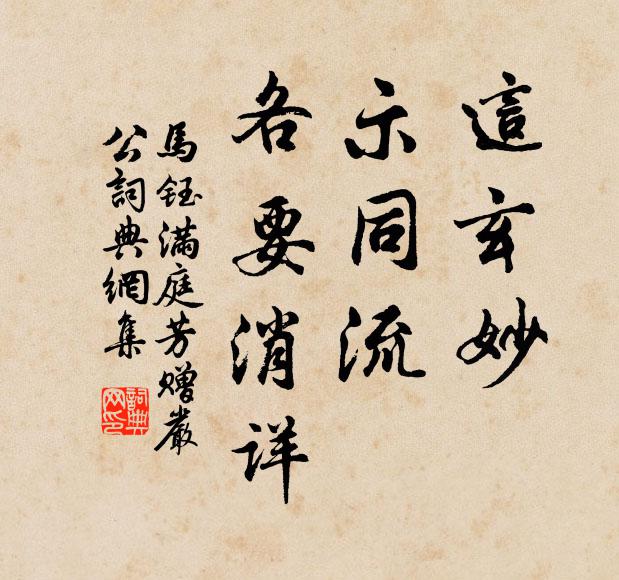 這玄妙
示同流
各要消詳
馬鈺滿庭芳贈嚴
公詞典網集
詞典
网印